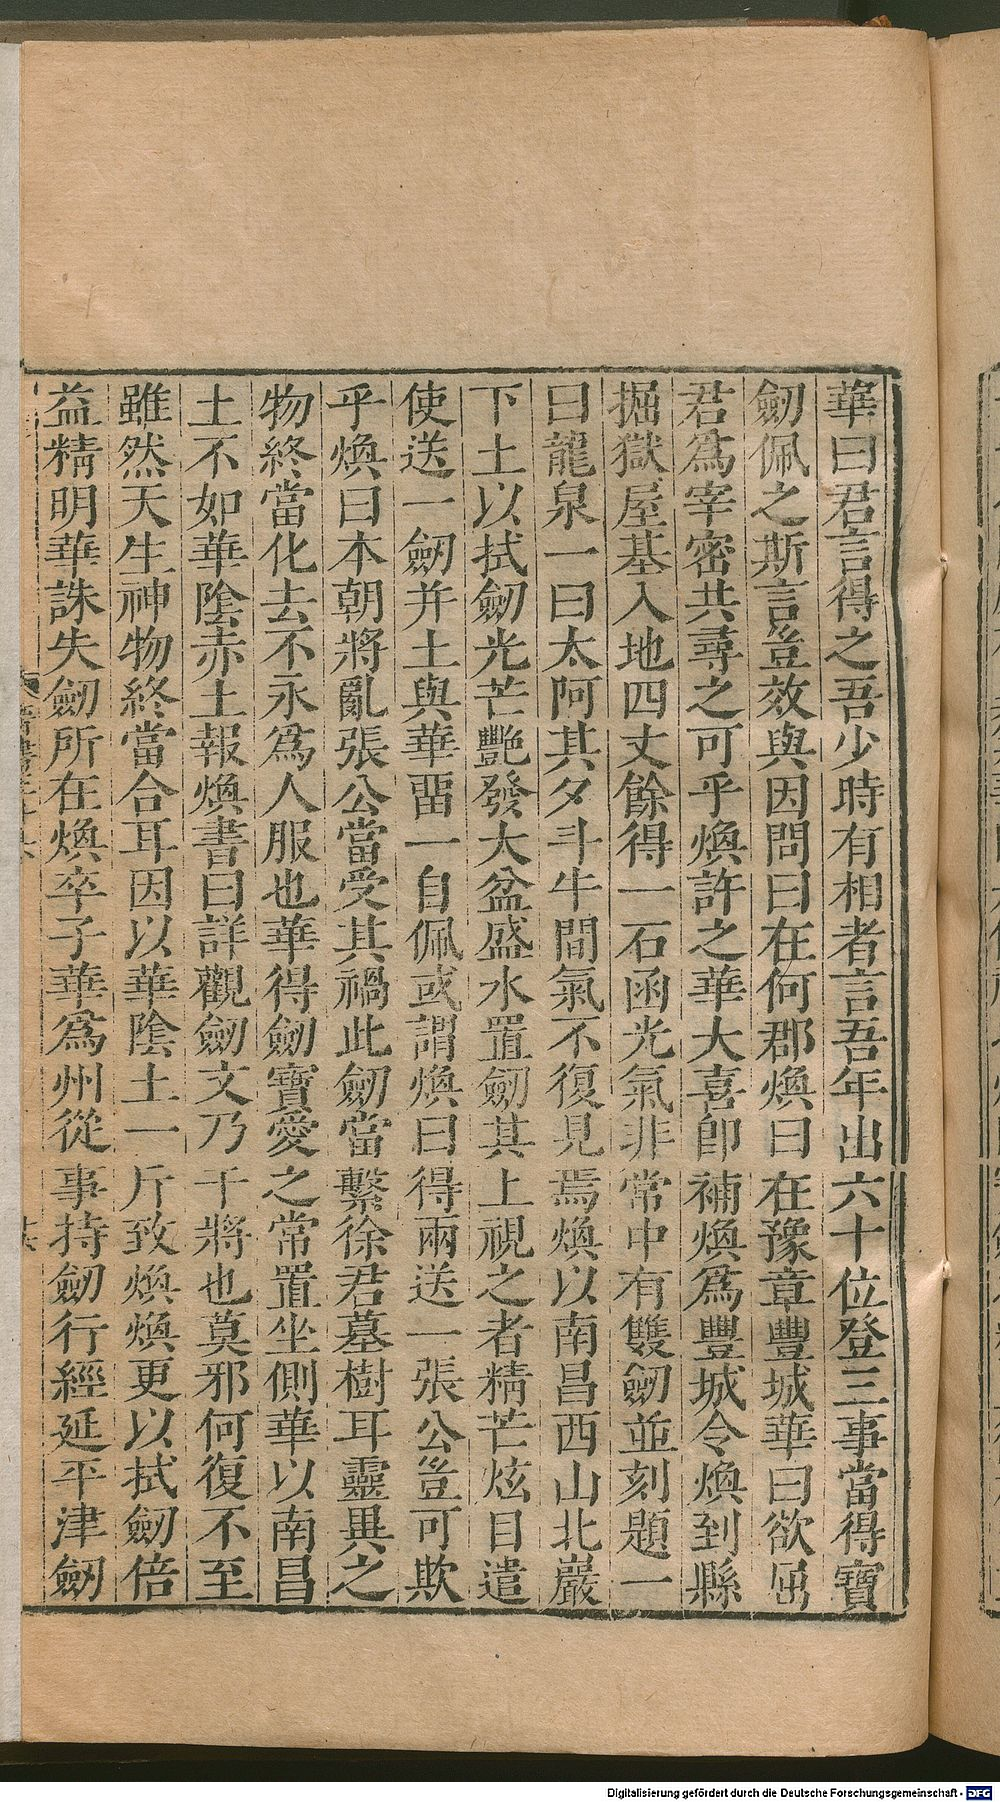 華曰君言得之吾少時有相者言吾年出六十位登三事當得寶
劒佩之斯言豈效與因問曰在何郡煥曰在豫章豐城華曰欲屈
君爲宰密共尋之可乎煥許之華大喜卽補煥爲豐城令煥到縣
掘獄屋基入地四丈餘得一石函光氣非常中有雙劒並刻題一
曰龍泉一曰太阿其夕斗牛間氣不復見焉煥以南昌西山北巖
下土以拭劒光芒艷發大盆盛水置劒其上視之者精芒炫目遣
使送一劒并土與華畱一自佩或謂煥曰得兩送一張公豈可欺
乎煥曰本朝將亂張公當受其禍此劒當繫徐君墓樹耳靈異之
物終當化去不永爲人服也華得劒寶愛之常置坐側華以南昌
土不如華陰赤土報煥書曰詳觀劒文乃干將也莫邪何復不至
雖然天生神物終當合耳因以華陰土一斤致煥煥更以拭劒倍
益精明華誅失劒所在煥卒子華爲州從事持劒行經延平津劒
Digitalisierung gefördert durch die Deutsche Forschungsgemeinschaft - DFG